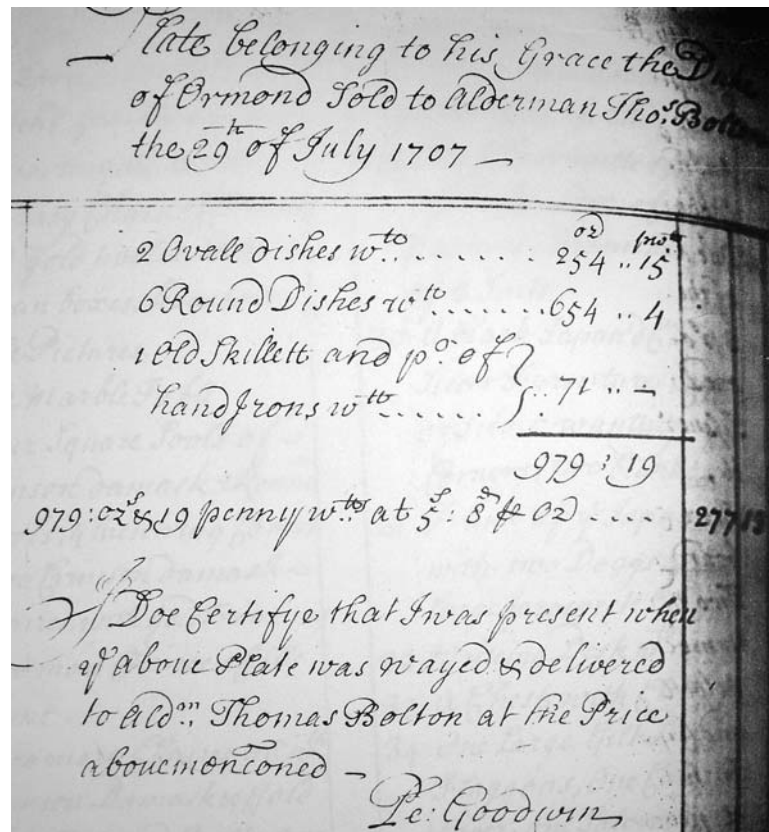 Plate belonging to his Grace the Duke
of Ormond Sold to Alderman Tho.s Bolton
the 29th of July 1707 —
oz pwts
2 Ovale dishes wtt ....... 254 .. 15
6 Round Dishes wtt ....... 654 .. 4
1 Old Skillett and pr of
hand Irons wtt ...... } .. 71 .. —
979 : 19
979 : ozs & 19 penny wtts at 5s : 8d P oz .... 277 13
I Doe Certifye that I was present when
ye aboue Plate was wayed & delivered
to Aldm: Thomas Bolton at the Price
abouemencioned —
Pe: Goodwin